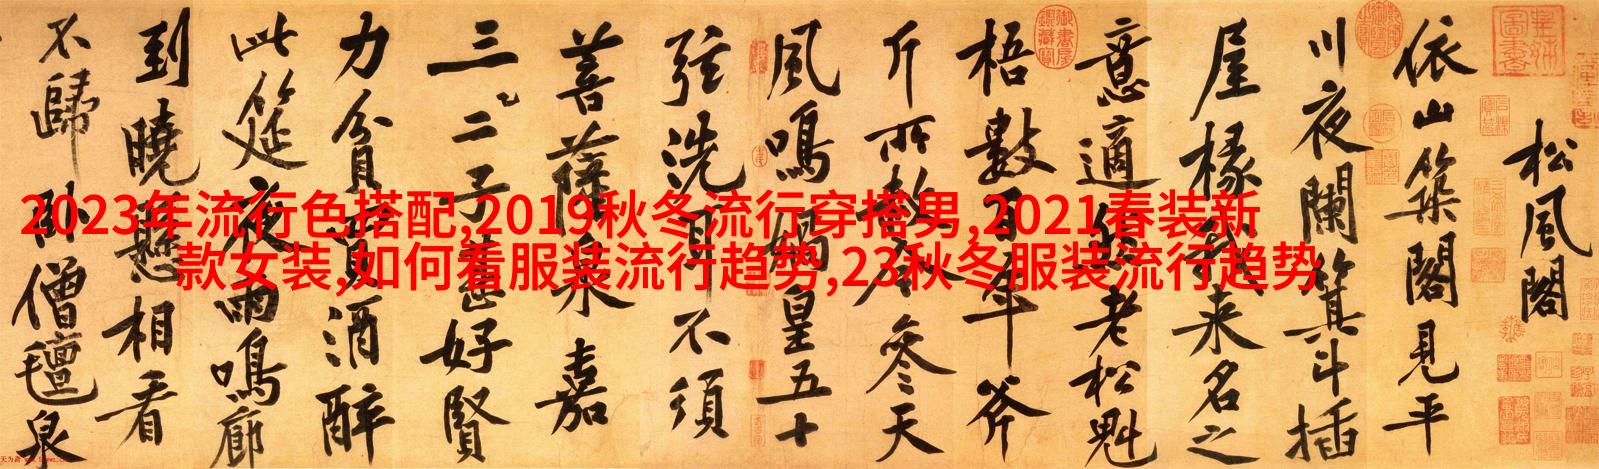 2023年流行色搭配,2019秋冬流行穿搭男,2021春装新
款女装,如何看服装流行趋势,23秋冬服装流行趋势
松風閣
依山築閣見平
川夜闌箕斗插
屋椽我来名之
意適然老松魁
梧數百年斧
斤所赦今參天
風鳴媧皇五十
弦洗耳不須
菩薩泉嘉
三二子甚好賢
力貧買酒醉
此筵夜雨鳴廊
到曉懸相看
不歸卧僧氊泉